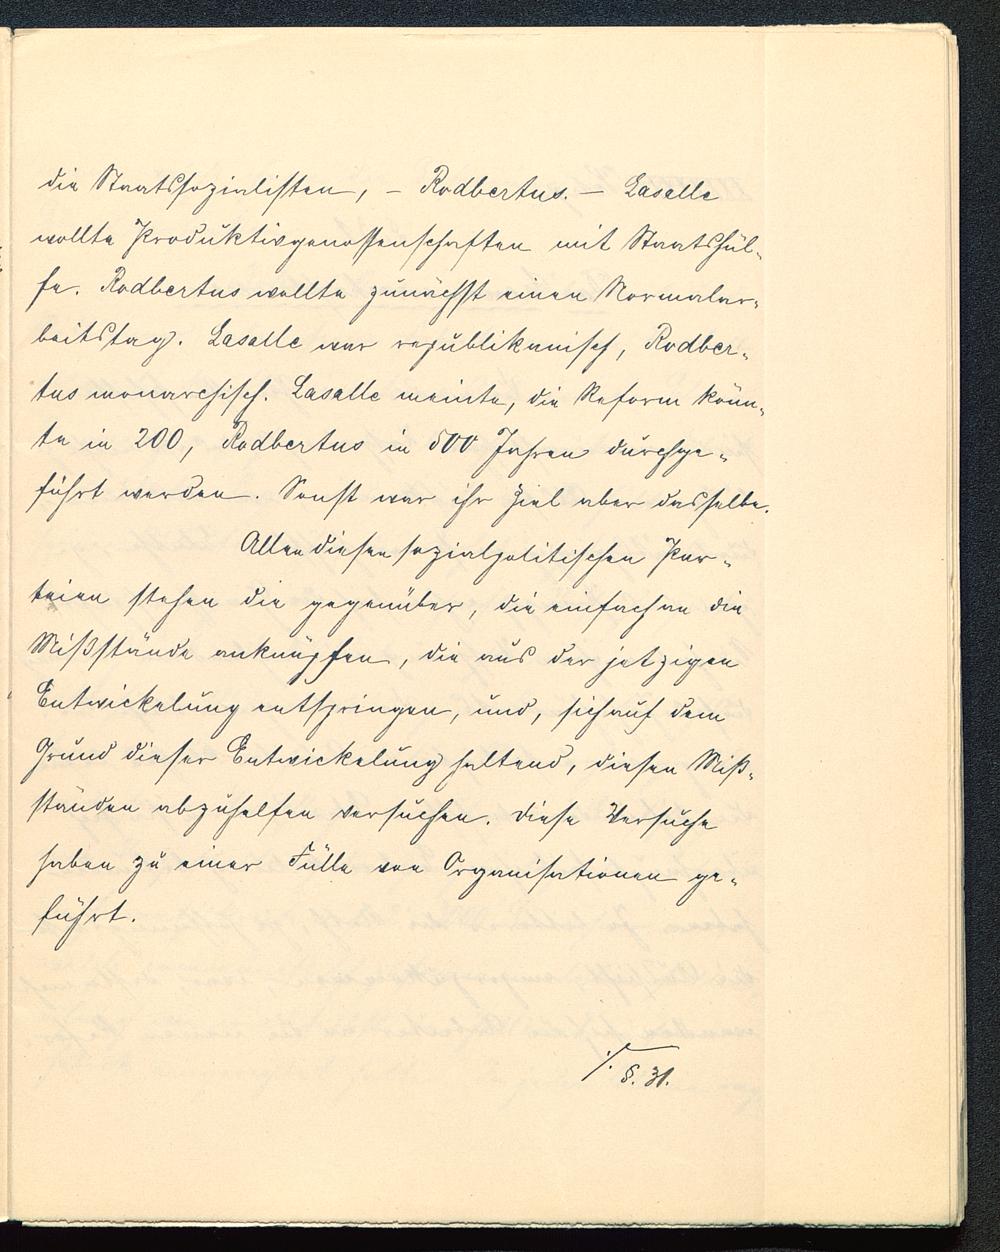 die Staatssozialisten, – Rodbertus. – Lasalle
wollte Produktivgenossenschaften mit Staatshül-
fe. Rodbertus wollte zunächst einen Normalar-
beitstag. Lasalle war republikanisch, Rodber-
tus monarchisch. Lasalle meinte, die Reform könn-
te in 200, Rodbertus in 500 Jahren durchge-
führt werden. Sonst war ihr Ziel aber dasselbe.
Allen diesen sozialpolitischen Par-
teien stehen die gegenüber, die einfach an die
Mißstände anknüpfen, die aus der jetzigen
Entwickelung entspringen, und, sich auf dem
Grund dieser Entwickelung haltend, diesen Miß-
ständen abzuhelfen versuchen. Diese Versuche
haben zu einer Fülle von Organisationen ge-
führt.
./. §. 31.